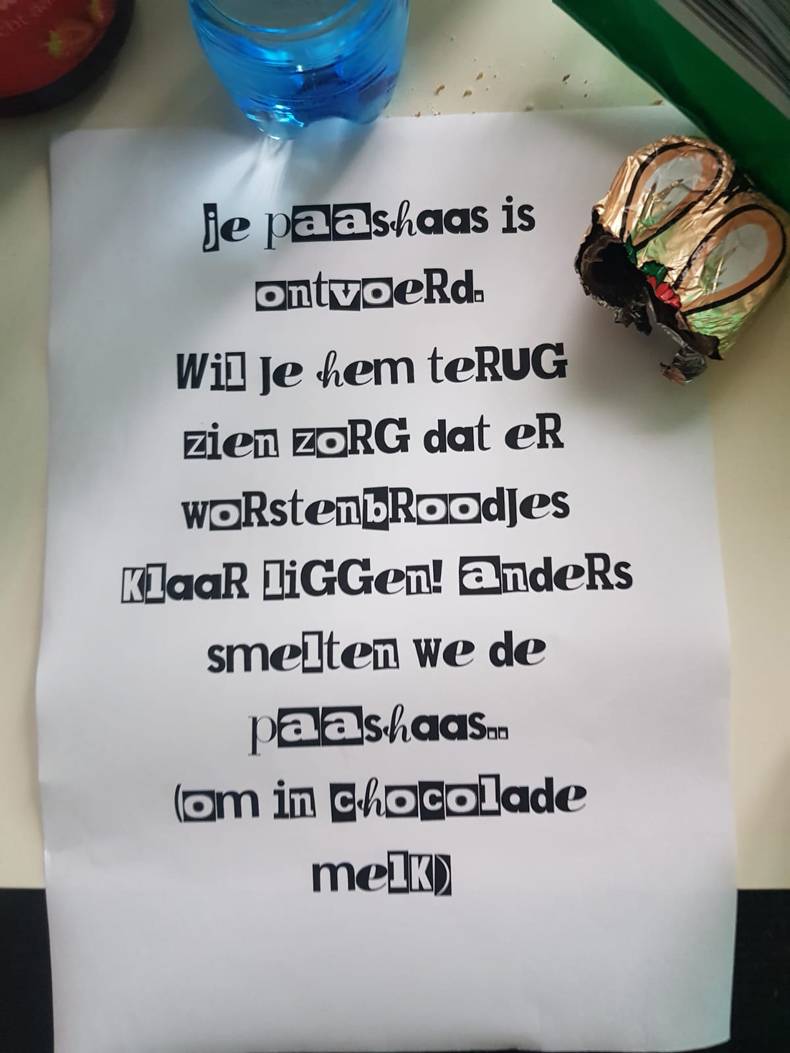 je paashaas is
ontvoeRd.
Wil je hem teRUG
zien zoRG dat eR
woRstenbRoodjes
KlaaR liGGen! andeRs
smelten we de
paashaas..
(om in chocolade
melK)